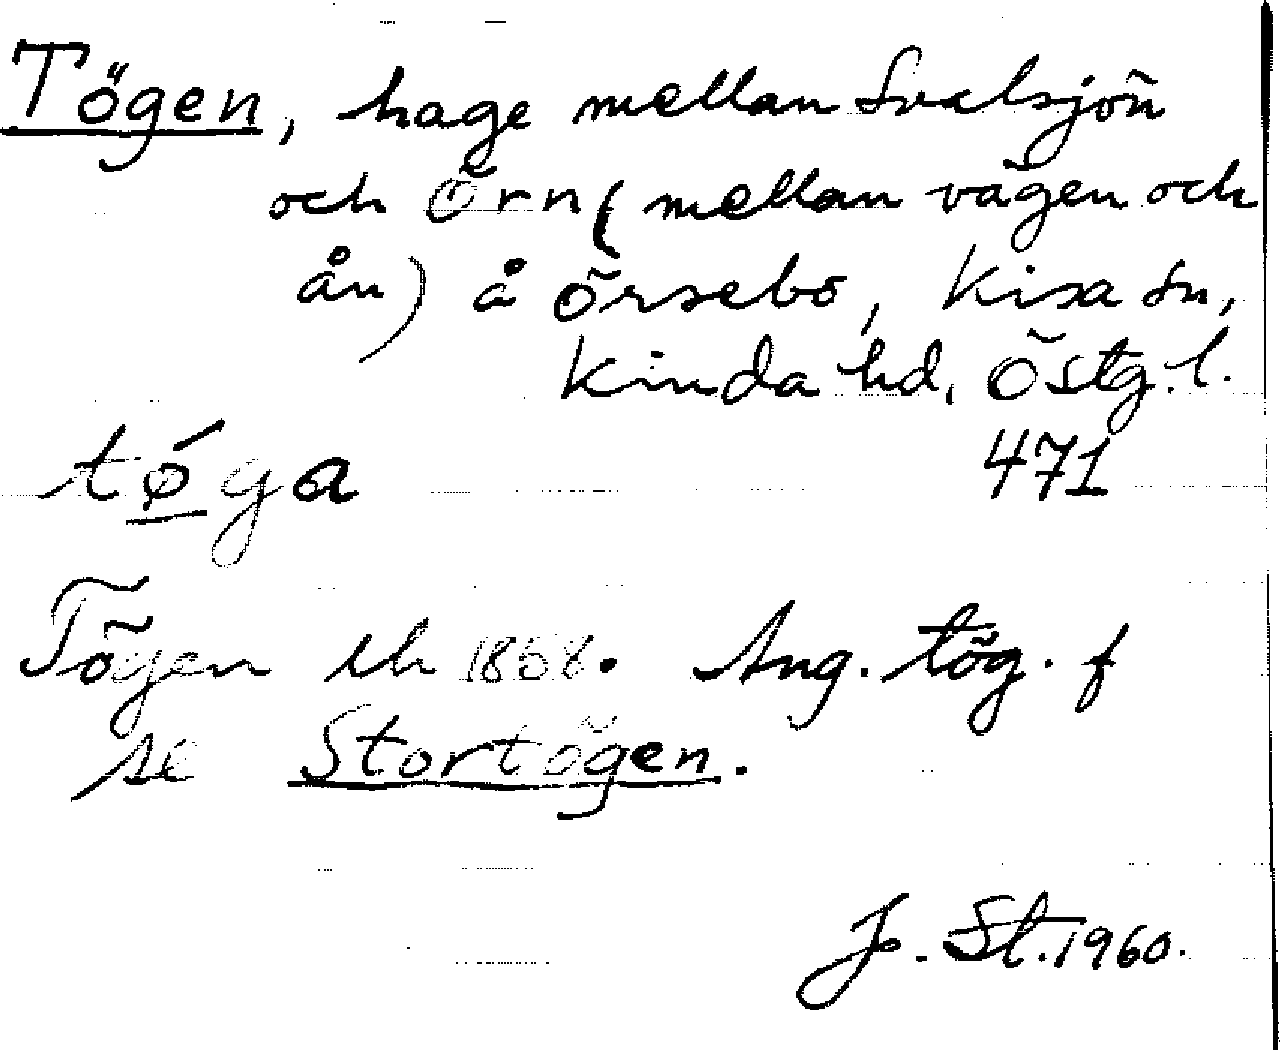 Tögen, hage mellan Svalsjön
och Örn (mellan vägen och
ån) å Örsebo, Kisa sn,
Kinda hd, Östg. l.
tǿga 471
Tögen ek 1868. Ang. tög. f
se Stortögen.
J. St. 1960.